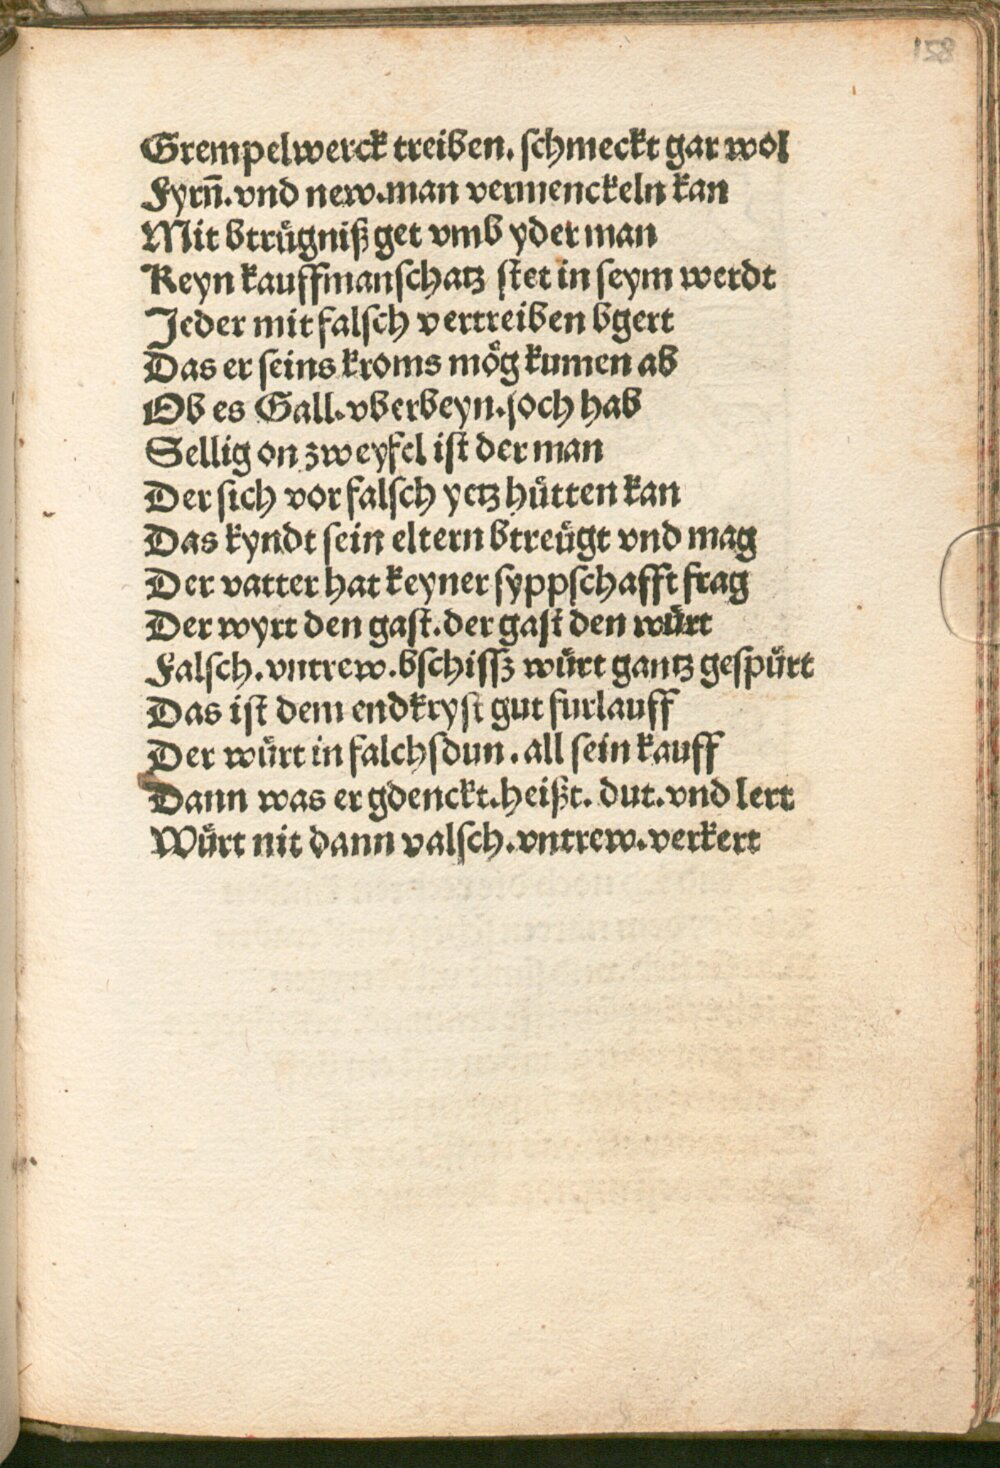 158
Grempelwerck treiben. schmeckt gar wol
Fyrñ. vnd new. man vermenckeln kan
Mit btrůgniß get vmb yder man
Keyn kauffmanschatz stet in seym werdt
Jeder mit falsch vertreiben bgert
Das er seins kroms mög kumen ab
Ob es Gall. vberbeyn. joch hab
Sellig on zweyfel ist der man
Der sich vor falsch yetz hütten kan
Das kyndt sein eltern btreügt vnd mag
Der vatter hat keyner syppschafft frag
Der wyrt den gast. der gast den würt
Falsch. vntrew. bschissz würt gantz gespürt
Das ist dem endkryst gut furlauff
Der würt in falchsdun. all sein kauff
Dann was er gdenckt. heißt. dut. vnd lert
Würt nit dann valsch. vntrew. verkert